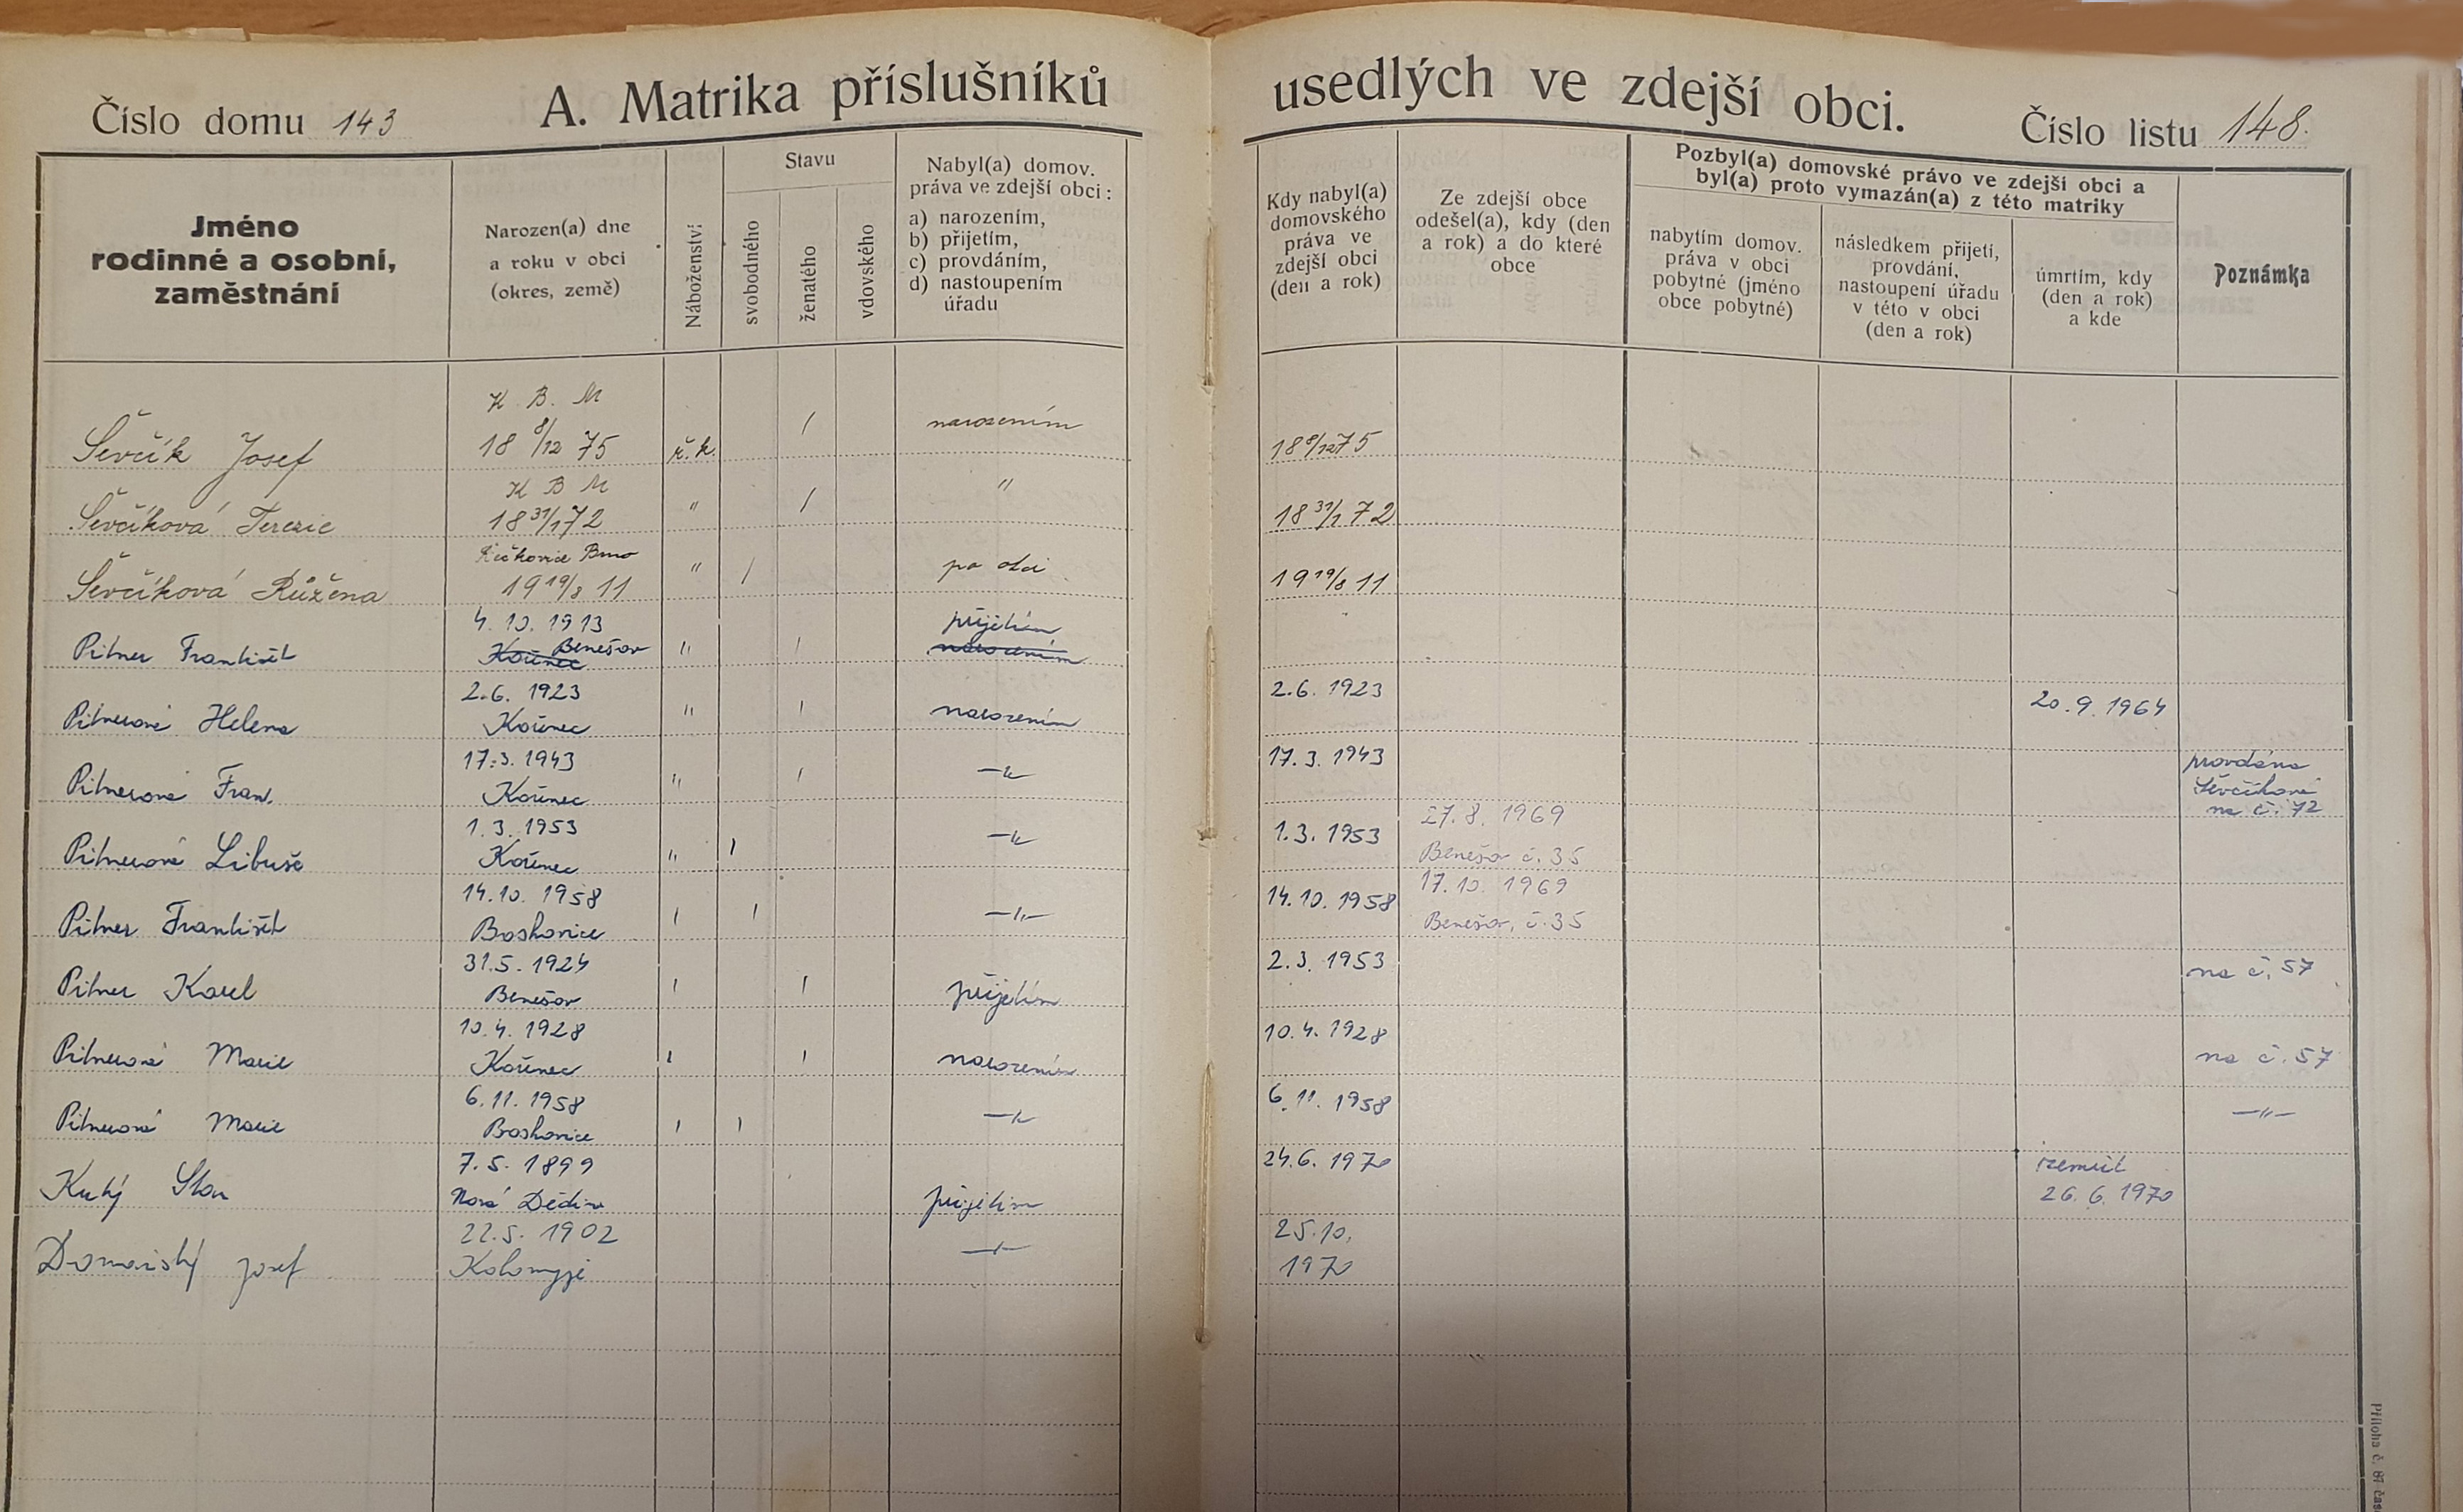 Číslo domu 143
A. Matrika příslušníků usedlých ve zdejší obci.
Číslo listu 148.
Jméno
rodinné a osobní,
zaměstnání
Narozen(a) dne
a roku v obci
(okres, země)
Náboženství
Stavu
svobodného
ženatého
vdovského
Nabyl(a) domov.
práva ve zdejší obci:
a) narozením,
b) přijetím,
c) provdáním,
d) nastoupením
úřadu
Kdy nabyl(a)
domovského
práva ve
zdejší obci
(den a rok)
Ze zdejší obce
odešel(a), kdy (den
a rok) a do které
obce
Pozbyl(a) domovské právo ve zdejší obci a
byl(a) proto vymazán(a) z této matriky
nabytím domov.
práva v obci
pobytné (jméno
obce pobytné)
následkem přijetí,
provdání,
nastoupení úřadu
v této v obci
(den a rok)
úmrtím, kdy
(den a rok)
a kde
Poznámka
K. B. M
Ševčík Josef 18 8/12 75 ř.k. / narozením 18 8/12 75
K B M
Ševčíková Terezie 18 31/1 72 " / " 18 31/1 72
Řečkovice Brno
Ševčíková Růžena 19 19/8 11 " / po otci 19 19/8 11
4. 10. 1913 přijetím
Pitner František Kořenec Benešov " / narozením
2.6. 1923 2.6. 1923 20.9.1964
Pitnerová Helena Kořenec " / narozením
17.3. 1943 17.3. 1943 provdána
Pitnerová Fran. Kořenec " / —"— Ševčíková
na č. 72
1.3. 1953 1.3. 1953 27.8. 1969
Pitnerová Libuše Kořenec " / —"— Benešov č. 35
14.10. 1958 14.10. 1958 17.10. 1969
Pitner František Boskovice / / —"— Benešov, č. 35
31.5. 1924 2.3. 1953 na č. 57
Pitner Karel Benešov / / přijetím
10.4. 1928 10.4. 1928
Pitnerová Marie Kořenec / / narozením na č. 57
6.11. 1958 6.11. 1958
Pitnerová Marie Boskovice / / —"— —"—
7.5. 1899 24.6. 1970 zemřel
Nová Dědina přijetím 26.6.1970
22.5. 1902 25.10.
Josef Kolomyje —"— 1970
Příloha č.